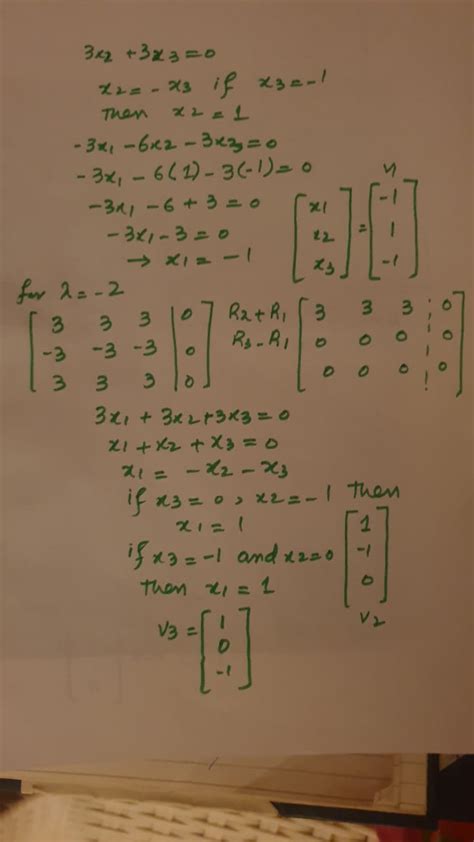 3x2 + 3x3 = 0
x2 = - x3 if x3 = -1
Then x2 = 1
-3x1 - 6x2 - 3x3 = 0
-3x1 - 6(1) - 3(-1) = 0
-3x1 - 6 + 3 = 0
-3x1 - 3 = 0
→ x1 = -1
[x1 x2 x3] = [-1 1 -1] v1
for λ = -2
[3 3 3 | 0
-3 -3 -3 | 0
3 3 3 | 0]
R2 + R1
R3 - R1
[3 3 3 | 0
0 0 0 | 0
0 0 0 | 0]
3x1 + 3x2 + 3x3 = 0
x1 + x2 + x3 = 0
x1 = - x2 - x3
if x3 = 0, x2 = -1 then
x1 = 1
if x3 = -1 and x2 = 0
then x1 = 1
[1 -1 0]
v2
v3 = [1 0 -1]